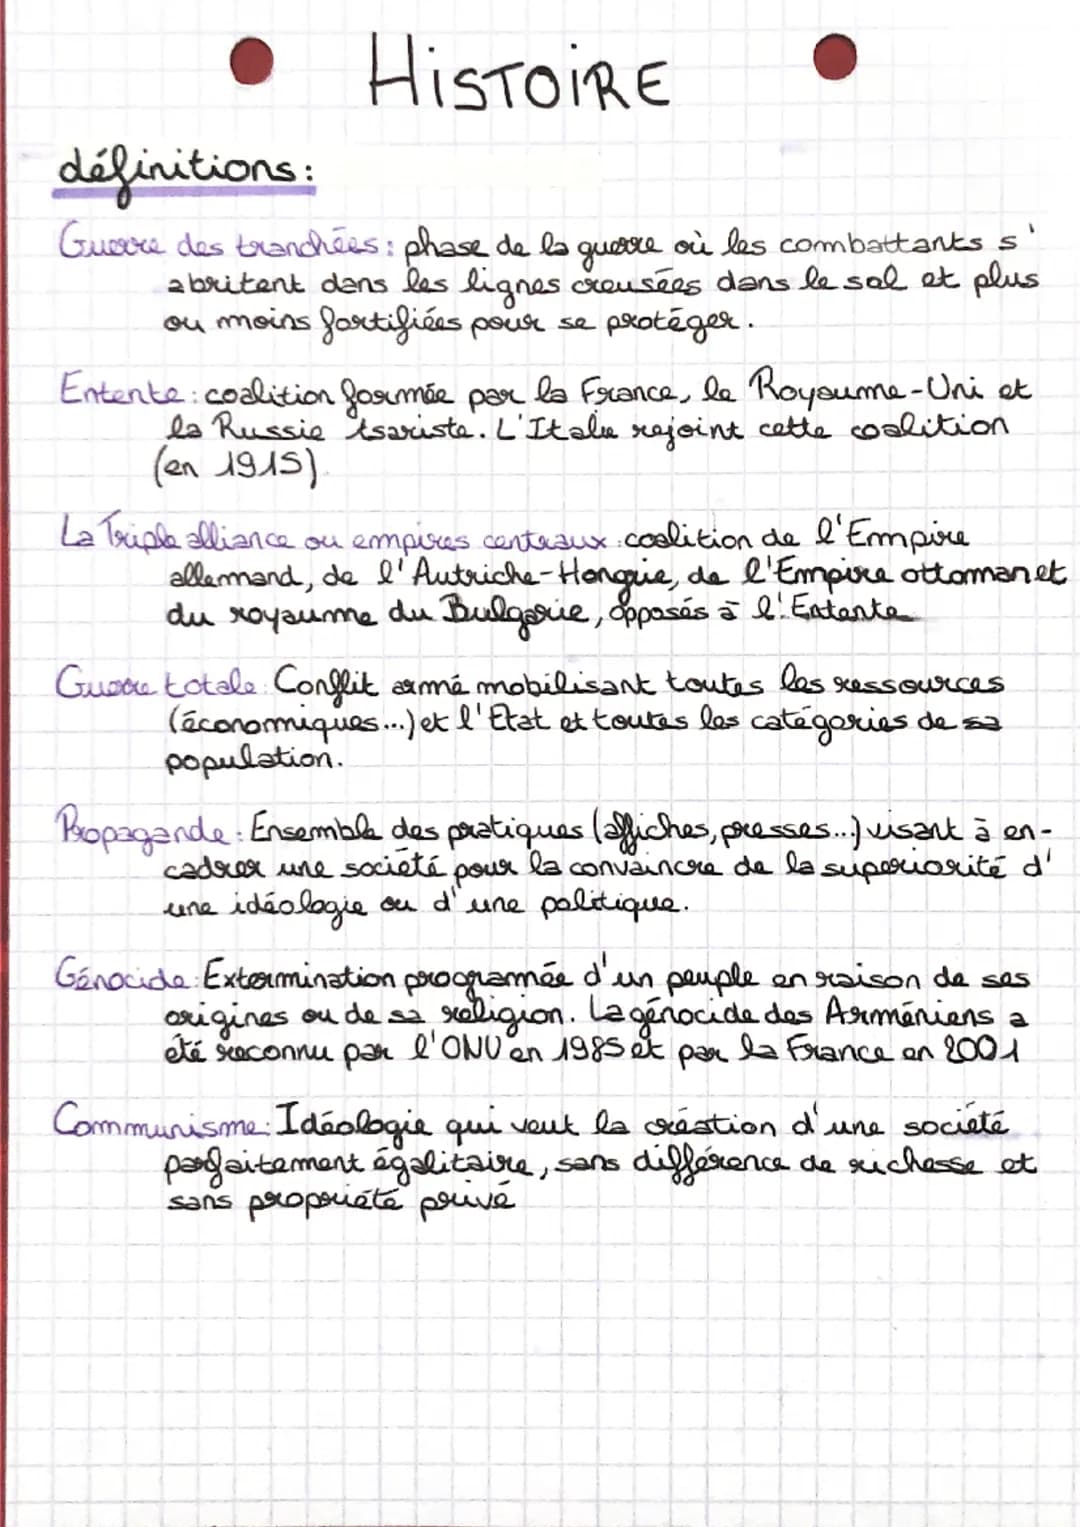 HISTOIRE
définitions:
Guerre des tranchées: phase de la guerre où les combattants s'
abritent dans les lignes creusées dans le sol et plus
ou moins fortifiées pour se protéger.
Entente: coalition formée par la France, le Royaume-Uni et
la Russie tsariste. L'Italie rejoint cette coalition
(en 1915)
La Triple alliance ou empires centraux: coalition de l'Empire
allemand, de l'Autriche-Hongrie, de l'Empire ottoman et
du royaume du Bulgarie, opposés à l'Entente
Guerre totale: Conflit armé mobilisant toutes les ressources
(économiques...) et l'Etat et toutes les catégories de sa
population.
Propagande: Ensemble des pratiques (affiches, presses...) visant à en-
cadrer une société pour la convaincre de la superiorité d'
une idéologie ou d'une politique.
Génocide: Extermination programmée d'un peuple en raison de ses
origines ou de sa religion. Le génocide des Arméniens a
été reconnu par l'ONU en 1985 et par la France en 2001
Communisme: Idéologie qui veut la création d'une société
parfaitement égalitaire, sans différence de richesse et
sans propriété privé